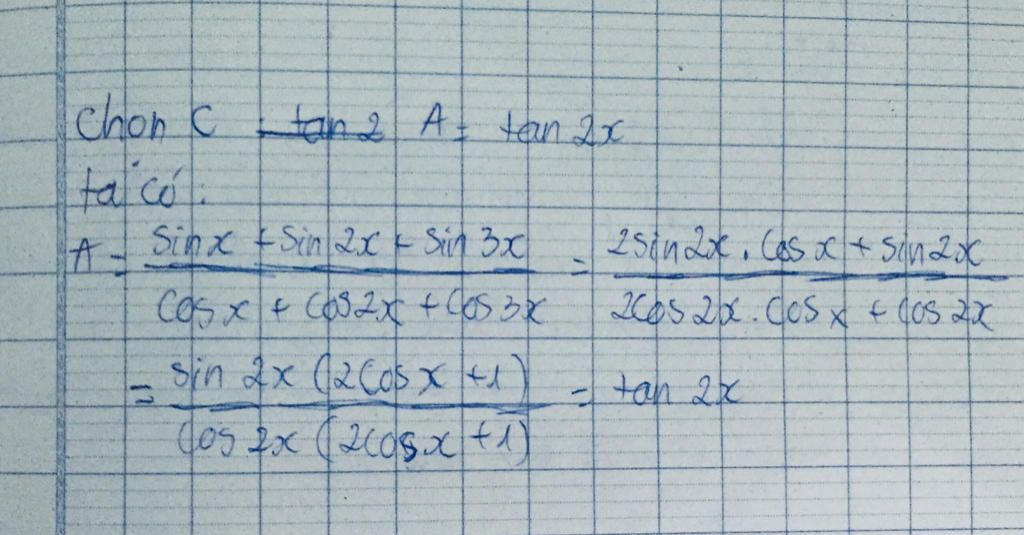 Chọn C tan 2 A = tan 2x
ta có:
A = sin x + sin 2x + sin 3x / cos x + cos 2x + cos 3x = 2 sin 2x . cos x + sin 2x / 2cos 2x . cos x + cos 2x
= sin 2x (2cos x + 1) / cos 2x (2cos x + 1) = tan 2x